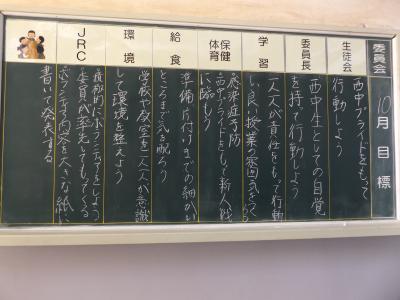 委員会
10月目標
生徒会
西中プライドをもって
行動しよう
委員長
西中生としての自覚
を持て行動しよう
学習
一人一人が責任をもって行動
し良い授業の雰囲気をつくろう
保健体育
感染症予防
西中プライドをもって新人戦
に臨もう
給食
準備片付けまでの細かい
ところまで気を配ろう
環境
学校や教室を一人一人が意識
して環境を整えよう
JRC
積極的にボランティアをしよう
委員が率先してもってくる
ボランティア内容を大きな紙に
書いて発表する